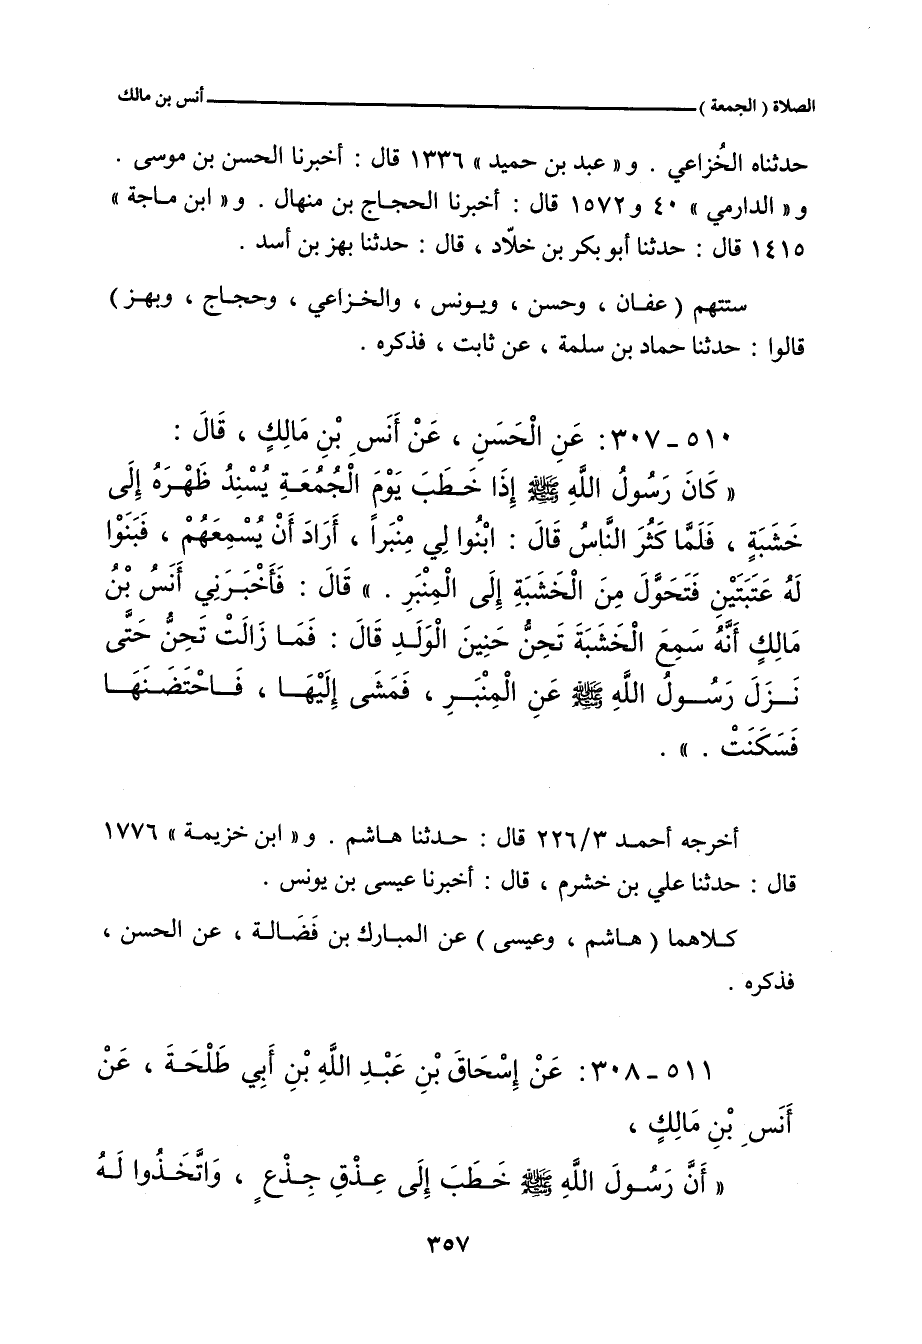 الصلاة ( الجمعة ) ـــــــــــــــــــــ أنس بن مالك
حدثناه الخُزاعي . و« عبد بن حميد » ١٣٣٦ قال : أخبرنا الحسن بن موسى .
و« الدارمي » ٤٠ و١٥٧٢ قال : أخبرنا الحجاج بن منهال . و« ابن ماجة »
١٤١٥ قال : حدثنا أبو بكر بن خلّاد ، قال : حدثنا بهز بن أسد .
ستتهم ( عفان ، وحسن ، ويونس ، والخزاعي ، وحجاج ، وبهز )
قالوا : حدثنا حماد بن سلمة ، عن ثابت ، فذكره .
٥١٠ - ٣٠٧: عَنِ الْحَسَنِ ، عَنْ أَنَسِ بْنِ مَالِكٍ ، قَالَ :
« كَانَ رَسُولُ اللَّهِ ﷺ إِذَا خَطَبَ يَوْمَ الْجُمُعَةِ يُسْنِدُ ظَهْرَهُ إِلَى
خَشَبَةٍ ، فَلَمَّا كَثُرَ النَّاسُ قَالَ : ابْنُوا لِي مِنْبَراً ، أَرَادَ أَنْ يُسْمِعَهُمْ ، فَبَنَوْا
لَهُ عَتَبَتَيْنِ فَتَحَوَّلَ مِنَ الْخَشَبَةِ إِلَى الْمِنْبَرِ . » قَالَ : فَأَخْبَرَنِي أَنَسُ بْنُ
مَالِكٍ أَنَّهُ سَمِعَ الْخَشَبَةَ تَحِنُّ حَنِينَ الْوَلَدِ قَالَ : فَمَا زَالَتْ تَحِنُّ حَتَّى
نَزَلَ رَسُولُ اللَّهِ ﷺ عَنِ الْمِنْبَرِ ، فَمَشَى إِلَيْهَا ، فَاحْتَضَنَهَا
فَسَكَنَتْ . » .
أخرجه أحمد ٢٢٦/٣ قال : حدثنا هاشم . و« ابن خزيمة » ١٧٧٦
قال : حدثنا علي بن خشرم ، قال : أخبرنا عيسى بن يونس .
كلاهما ( هاشم ، وعيسى ) عن المبارك بن فَضَالة ، عن الحسن ،
فذكره .
٥١١ - ٣٠٨: عَنْ إِسْحَاقَ بْنِ عَبْدِ اللَّهِ بْنِ أَبِي طَلْحَةَ ، عَنْ
أَنَسِ بْنِ مَالِكٍ ،
« أَنَّ رَسُولَ اللَّهِ ﷺ خَطَبَ إِلَى عِذْقِ جِذْعٍ ، وَاتَّخَذُوا لَهُ
٣٥٧